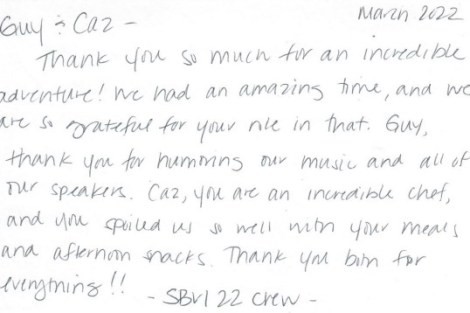 Guy & Caz -
March 2022
Thank you so much for an incredible
adventure! We had an amazing time, and we
are so grateful for your role in that. Guy,
thank you for humoring our music and all of
our speakers. Caz, you are an incredible chef,
and you spoiled us so well with your meals
and afternoon snacks. Thank you both for
everything!!
- SBVI 22 crew -